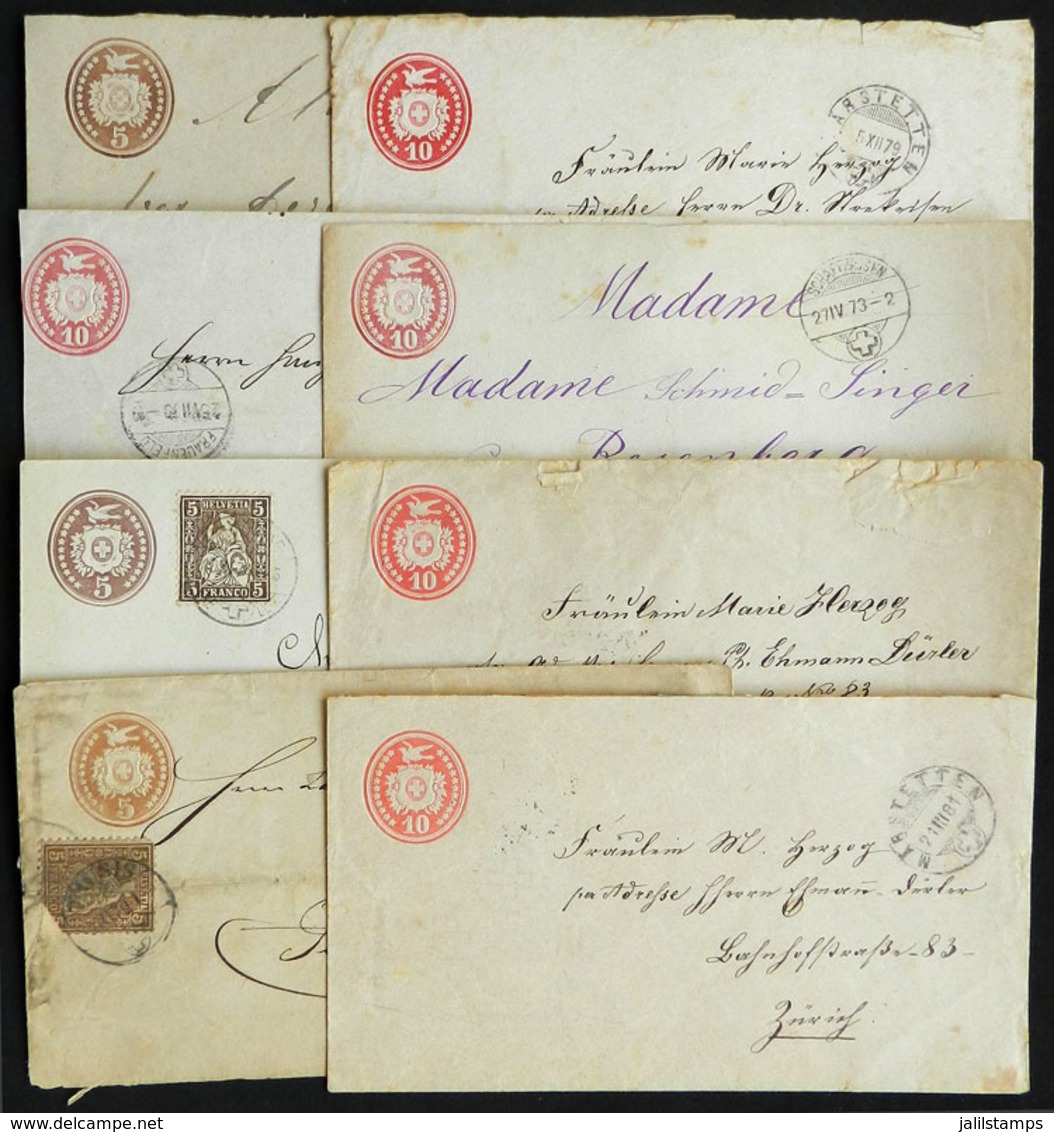 5
10
MÄRSTETTEN
5 XII 79
Fräulein Marie Herzog
pa Adresse Herrn Dr. Strekeisen
10
Herrn
FRAUENFELD
10
SCHAFFHAUSEN
27 IV 73-2
Madame
Madame Schmid-Singer
Rosenberg
5
5 HELVETIA 5
5 FRANCO 5
10
Fräulein Marie Herzog
Ehmann Dürler
83
5
Herrn
10
MÄRSTETTEN
21 III 81
Fräulein M. Herzog
pa Adresse HHerrn Ehmann-Dürler
Bahnhofstraße-83-
Zürich.
jalilstamps